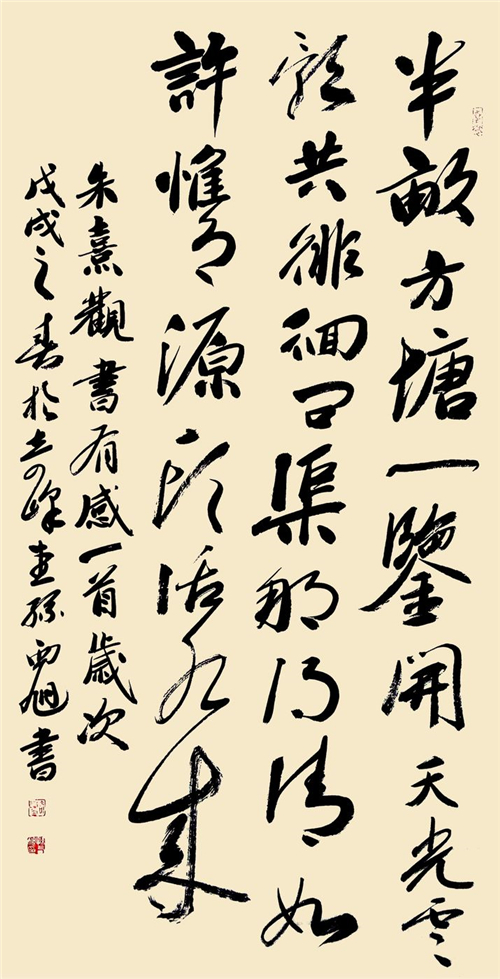 半畝方塘一鑒開天光雲
影共徘徊問渠那得清如
許惟有源頭活水來
朱熹觀書有感一首歲次
戊戌之春於峰孫旭書